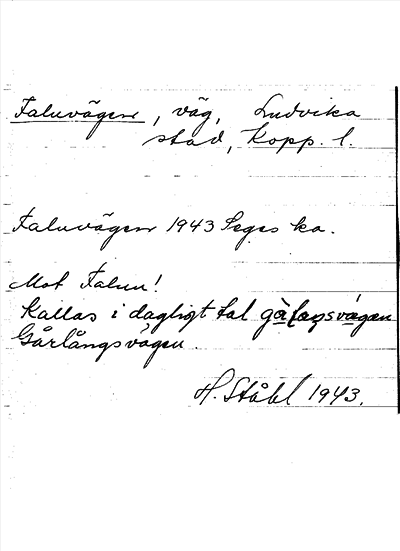 Faluvägen, väg, Ludvika
stad, Kopp. l.
Faluvägen 1943 Seges ka.
Mot Falun!
Kallas i dagligt tal
Gårlångsvägen.
H. Ståhl 1943.